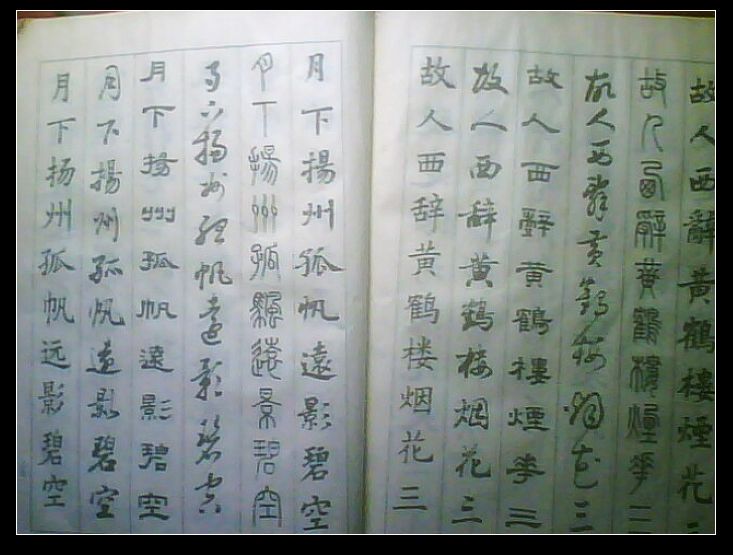 故人西辭黃鶴樓煙花三
故人西辭黃鶴樓煙華三
故人西辭黃鶴樓烟花三
故人西辭黃鶴樓煙華三
故人西辭黃鶴樓烟花三
故人西辞黄鹤楼烟花三
月下揚州孤帆遠影碧空
月下揚州孤颿遠景碧空
月下揚州孤帆遠影碧空
月下揚州孤帆遠影碧空
月下揚州孤帆遠影碧空
月下扬州孤帆远影碧空